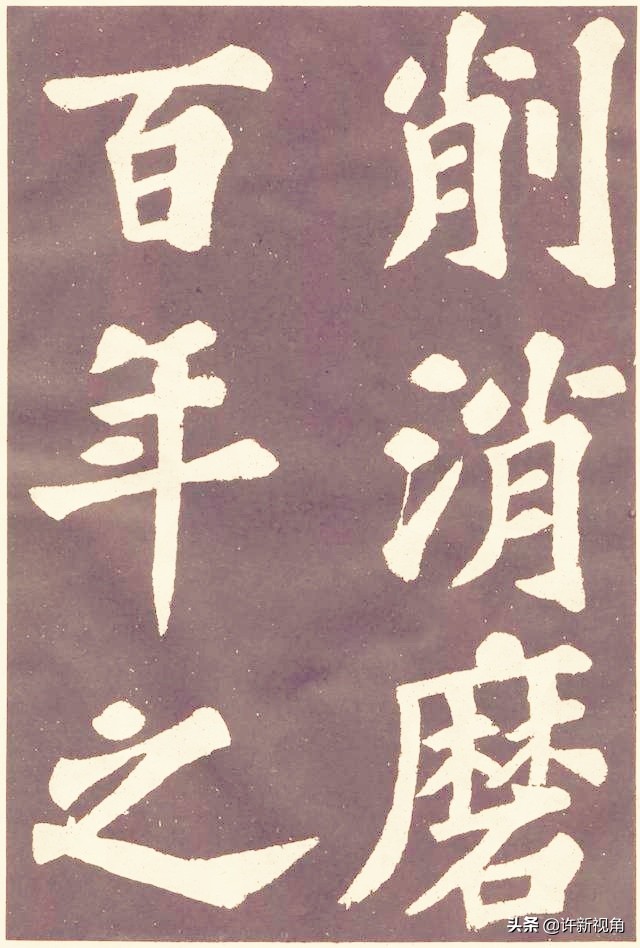 削消磨
百年之
头条 @许新视角